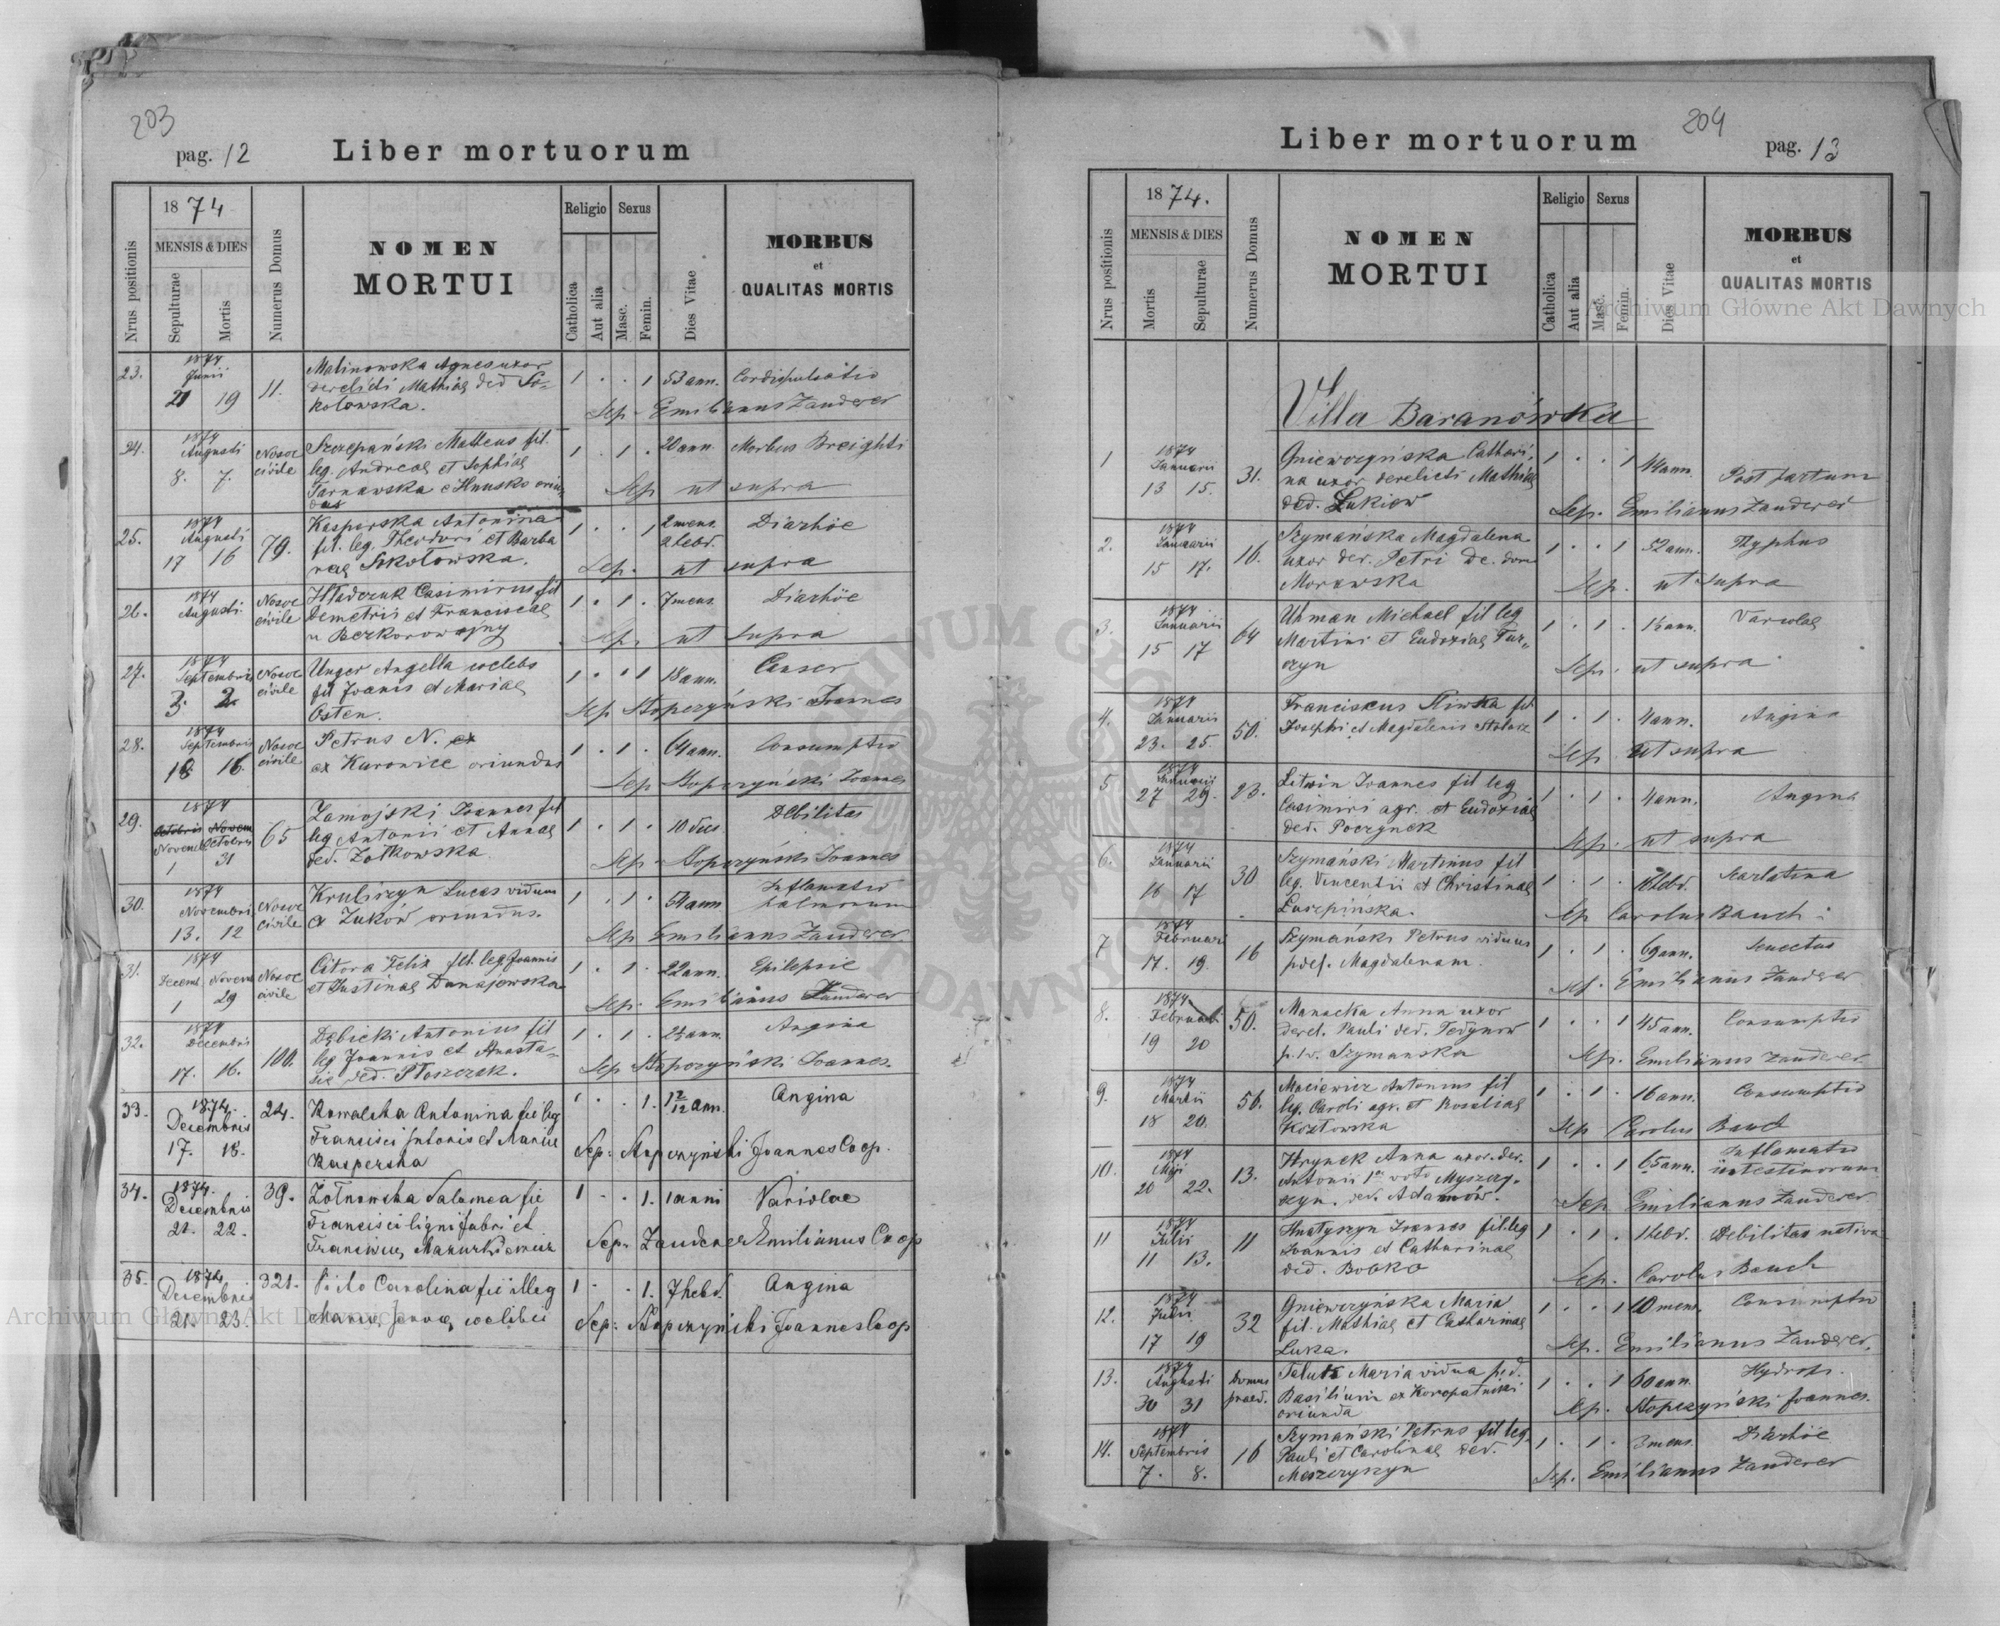 203
pag. 12 Liber mortuorum
1874
Religio Sexus
Nrus positionis
MENSIS & DIES
Sepulturae
Mortis
Numerus Domus
NOMEN
MORTUI
Catholica
Aut alia
Masc.
Femin.
Dies Vitae
MORBUS
et
QUALITAS MORTIS
23. 1874 Junii 21 19 11. Malinowska Agnes uxor 1 . . 1 53 ann. Cordis pulsatio
derelicti Mathiae ded So-
kolowska. Sep. Emilianus Zanderer
24. 1874 Augusti 8. 7. Nosoc civile Szczepański Matteus fil. 1 . 1 . 20 ann. Morbus Breighti
leg. Andreae et Sophiae
Tarnawska e Hnusko oriun
dus Sep ut supra
25. 1874 Augusti 17 16 79. Kasperska Antonina 1 . . 1 2 mens. 2 hebd. Diarhöe
fil. leg. Theodori et Barba
rae Sokołowska. Sep. ut supra
26. 1874 Augusti Nosoc civile Hładczuk Casimirus fil 1 . 1 . 7 mens. Diarhöe
Demetrii et Franciscae
Sep. ut supra
27. 1874 Septembris 3. 2. Nosoc civile Unger Angella coelebs 1 . . 1 18 ann. Canser
fil Joanis et Mariae
Osten. Sep Stopczyński Joannes
28. 1874 Septembris 18 16. Nosoc civile Petrus N. ex 1 . 1 . 64 ann. Consumptio
ex Kurowice oriundus Sep Stopczyński Joannes
29. 1874 Octobris Novem Novemb Octobris 1 31 65 Zamojski Joannes fil 1 . 1 . 10 dies. Debilitas
leg Antonii et Annae
ded. Żołkowska. Sep. Stopczyński Joannes
30. 1874 Novembri 13. 12 Nosoc civile Krubszyn Lucas viduus 1 . 1 . 54 ann Inflamatio
ex Żuków oriundus. pulmonum
Sep Emilianus Zanderer.
31. 1874 Decemb. Novemb 1 29 Nosoc civile Citora Felix fil. leg. Joannis 1 . 1 . 22 ann. Epilepsie
et Justinae Dunajewska
Sep. Emilianus Zanderer
32. 1874 Decembris 17. 16. 100. Dębicki Antonius fil 1 . 1 . 2½ ann. Angina
leg Joannis et Anasta-
sie ded. Płoszczak. Sep Stopczyński Joannes.
33. 1874. Decembris 17. 18. 24. Kowalska Antonina fil leg 1 . . 1. 1 2/12 ann. Angina
Francisci sutoris et Mariae
Kasperska Sep: Stopczyński Joannes Coop.
34. 1874. Decembris 21. 22. 39. Żółnowska Salomea fil 1 . . 1. 1 anni Variolae
Francisci lignifabri et
Franciscae Mazurkiewicz Sep. Zanderer Emilianus Coop
35. 1874 Decembris 21. 23. 321. Carolina fil illeg 1 . . 1. 7 hebd. Angina
Mariae coelibis Sep: Stopczyński Joannes Coop
204
Liber mortuorum pag. 13
1874.
Religio Sexus
Nrus positionis
MENSIS & DIES
Mortis
Sepulturae
Numerus Domus
NOMEN
MORTUI
Catholica
Aut alia
Masc.
Femin.
Dies Vitae
MORBUS
et
QUALITAS MORTIS
Villa Baranówka
1 1874 Januarii 13 15. 31. Gniewczyńska Cathari- 1 . . 1 44 ann. Post partum
na uxor derelicti Mathiae
ded. Łukiew Sep. Emilianus Zanderer
2. 1874 Januarii 15 17. 16. Szymańska Magdalena 1 . . 1 52 ann. Thyphus
uxor der. Petri De. dom
Morawska Sep. ut supra
3. 1874 Januarii 15 17 64 Uhman Michael fil leg 1 . 1 . 1½ ann. Variolae
Martini et Eudoxiae Tur-
czyn Sep. ut supra
4. 1874 Januarii 23. 25. 50. Franciscus Śliwka fil 1 . 1 . 4 ann. Angina
Josephi et Magdalenis Stolarz
Sep ut supra
5 1874 Januarii 27 29. 23. Litwin Joannes fil leg 1 . 1 . 4 ann. Angina
Casimiri agr. et Eudoxiae
ded. Poczynek Sep. ut supra
6. 1874 Januarii 16 17 30 Szymański Martinus fil 1 . 1 . hebd. Scarlatina
leg. Vincentii et Christinae
Luszpińska. Sep Carolus Bauch
7 1874 Februari 17. 19. 16 Szymański Petrus viduus 1 . 1 . 69 ann. Senectus
pdef. Magdalenam. Sep. Emilianus Zanderer
8. 1874 Februarii 19 20 50. Manacka Anna uxor 1 . . 1 45 ann. Consumptio
derel. Pauli ded. Fedynow
p. 1v. Szymanska Sep. Emilianus Zanderer
9. 1874 Martii 18 20. 56. Maciewicz Antonius fil 1 . 1 . 16 ann. Consumptio
leg. Caroli agr. et Rosaliae
Kozłowska Sep Carolus Bauch
10. 1874 Maji 20 22. 13. Hrynek Anna uxor. der. 1 . . 1 65 ann. Inflamatio
Antonii 1mo voto Myszczy- intestinorum
szyn. ded. Adamów. Sep Emilianus Zanderer
11 1874 Julii 11 13. 11 Hnatyszyn Joannes fil. leg 1 . 1 . 1 hebd. Debilitas nativa
Joannis et Catharinae
ded. Bojko Sep. Carolus Bauch
12. 1874 Julii 17 19 32 Gniewczyńska Maria 1 . . 1 10 mens. Consumptio
fil. Mathiae et Catharinae
Luka. Sep. Emilianus Zanderer.
13. 1874 Augusti 30 31 Domus praed. Maria vidua p.d. 1 . . 1 60 ann. Hydrops.
Basilium ex Koropatniki
oriunda Sep. Stopczyński Joannes.
14. 1874 Septembris 7. 8. 16 Szymański Petrus fil leg. 1 . 1 . 3 mens. Diarhöe
Pauli et Carolinae ded.
Moszczyszyn Sep. Emilianus Zanderer
Archiwum Główne Akt Dawnych
Archiwum Główne Akt Dawnych
ARCHIWUM GŁÓWNE AKT DAWNYCH